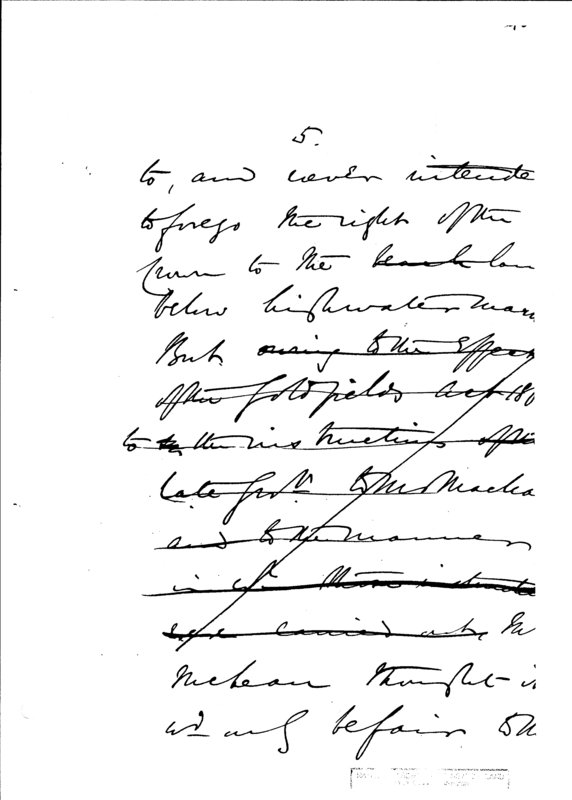 5.
to, and never intende
to forego the right of the
Crown to the beach lan
below highwater mar
But owing to the Effec
of the Goldfields Act 186
to the instructions of the
late Govt. to Mr Macka
and to the manner
in wh. these instructi
were carried out, Mr
McLean thought i
wd only be fair to